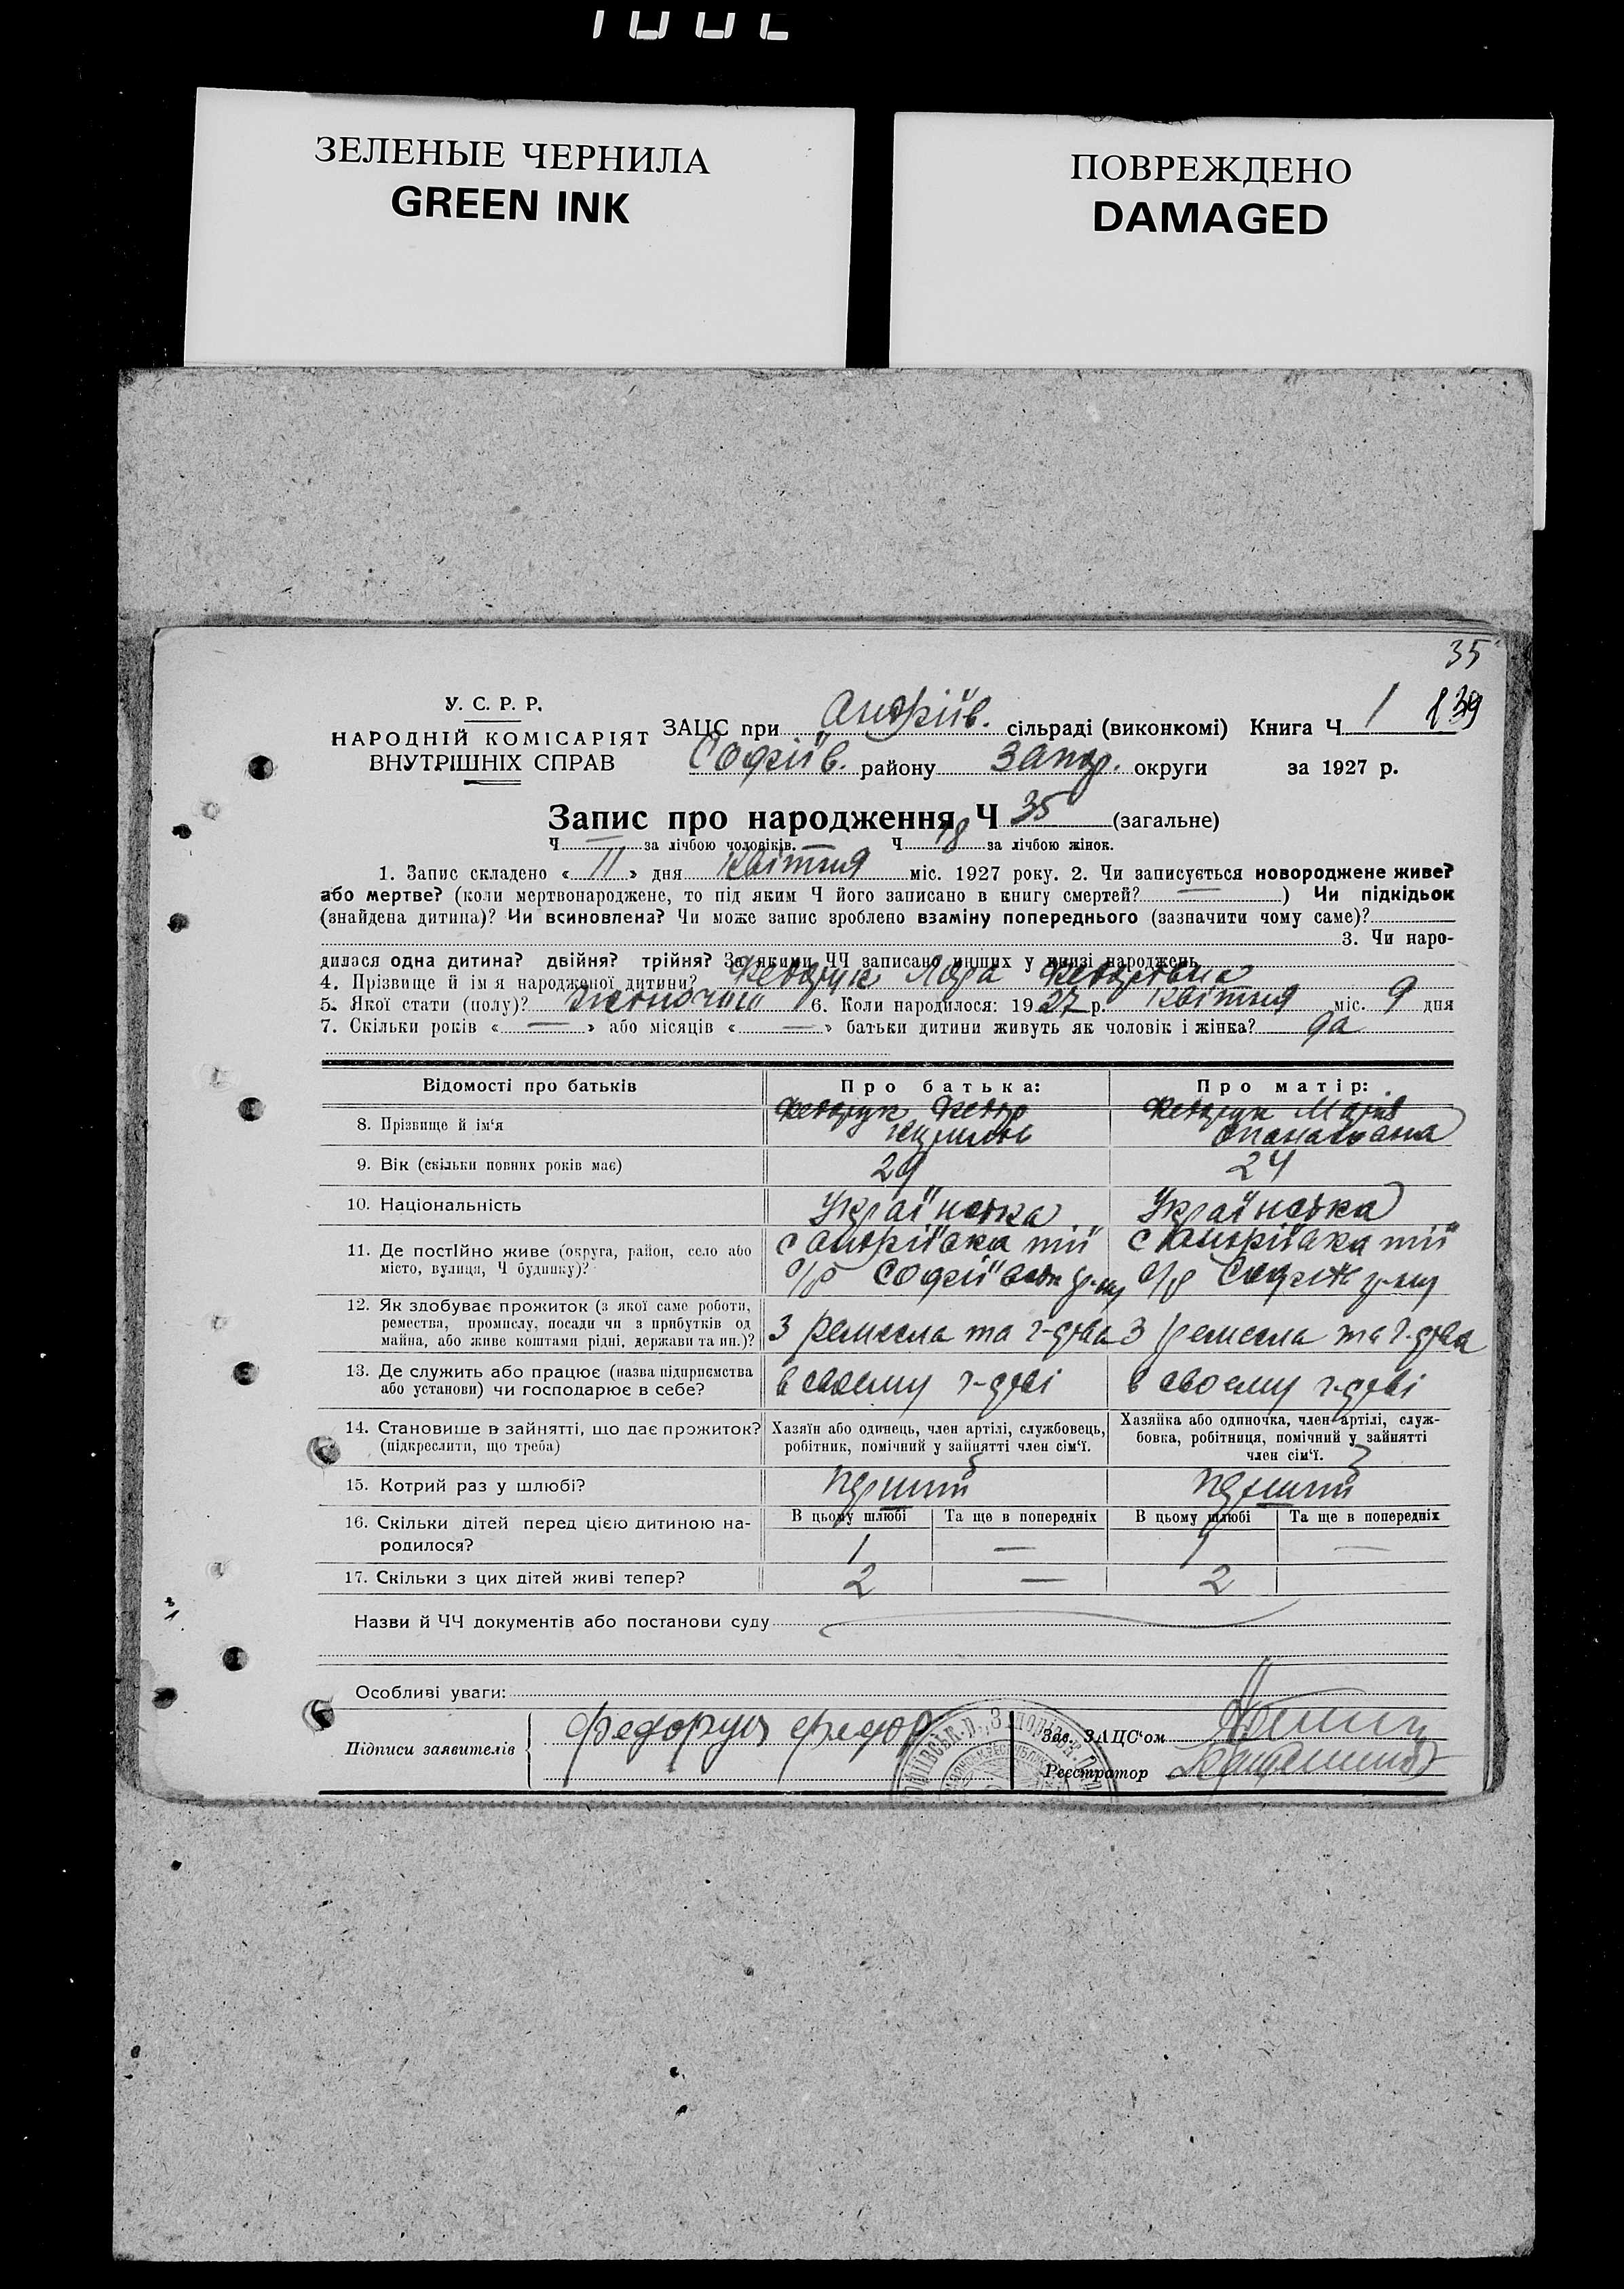 ЗЕЛЕНЫЕ ЧЕРНИЛА
GREEN INK
ПОВРЕЖДЕНО
DAMAGED
35
У. С. Р. Р.
НАРОДНІЙ КОМІСАРІЯТ
ВНУТРІШНІХ СПРАВ
ЗАЦС при Андріїв. сільраді (виконкомі) Книга Ч 1 139
Софіїв. району Запор. округи за 1927 р.
Запис про народження Ч 35 (загальне)
Ч — за лічбою чоловіків. — Ч 18 за лічбою жінок.
1. Запис складено « 11 » дня квітня міс. 1927 року. 2. Чи записується новороджене живе?
або мертве? (коли мертвонароджене, то під яким Ч його записано в книгу смертей? — ) Чи підкідьок
(знайдена дитина)? Чи всиновлена? Чи може запис зроблено взаміну попереднього (зазначити чому саме)?
3. Чи наро-
дилася одна дитина? двійня? трійня? За якими ЧЧ записано инших у книзі народжень
4. Прізвище й ім я народженої дитини? Федорук Лора Федоровна
5. Якої стати (полу)? жіночий 6. Коли народилося: 1927 р. квітня міс. 9 дня
7. Скільки років « — » або місяців « — » батьки дитини живуть як чоловік і жінка? да
Відомості про батьків Про батька: Про матір:
8. Прізвище й ім‘я Федорук Федор Федорук Марія
Опанасовна
9. Вік (скільки повних років має) 29 24
10. Національність Українська Українська
11. Де постІйно живе (округа, район, село або місто, вулиця, Ч будинку)? с Андріївка тії с Андріївка тії
с/р Софіївськ р-ну с/р Софіїв р-ну
12. Як здобуває прожиток (з якої саме роботи, ремества, промислу, посади чи з прибутків од майна, або живе коштами рідні, держави та ин.)? З ремесла та г-дтва З ремесла та г-дтва
13. Де служить або працює (назва підприємства або установи) чи господарює в себе? в своєму г-дтві в своєму г-дтві
14. Становище в зайнятті, що дає прожиток? (підкреслити, що треба) Хазяїн або одинець, член артілі, службовець, робітник, помічний у зайнятті член сім‘ї. Хазяйка або одиночка, член артілі, служ-бовка, робітниця, помічний у зайнятті член сім‘ї.
15. Котрий раз у шлюбі? перший перший
16. Скільки дітей перед цією дитиною на-родилося? В цьому шлюбі Та ще в попередніх В цьому шлюбі Та ще в попередніх
1 — 1 —
17. Скільки з цих дітей живі тепер? 2 — 2
Назви й ЧЧ документів або постанови суду
Особливі уваги:
Підписи заявителів Федорук Федор
Зав. ЗАЦС‘ом
Реєстратор